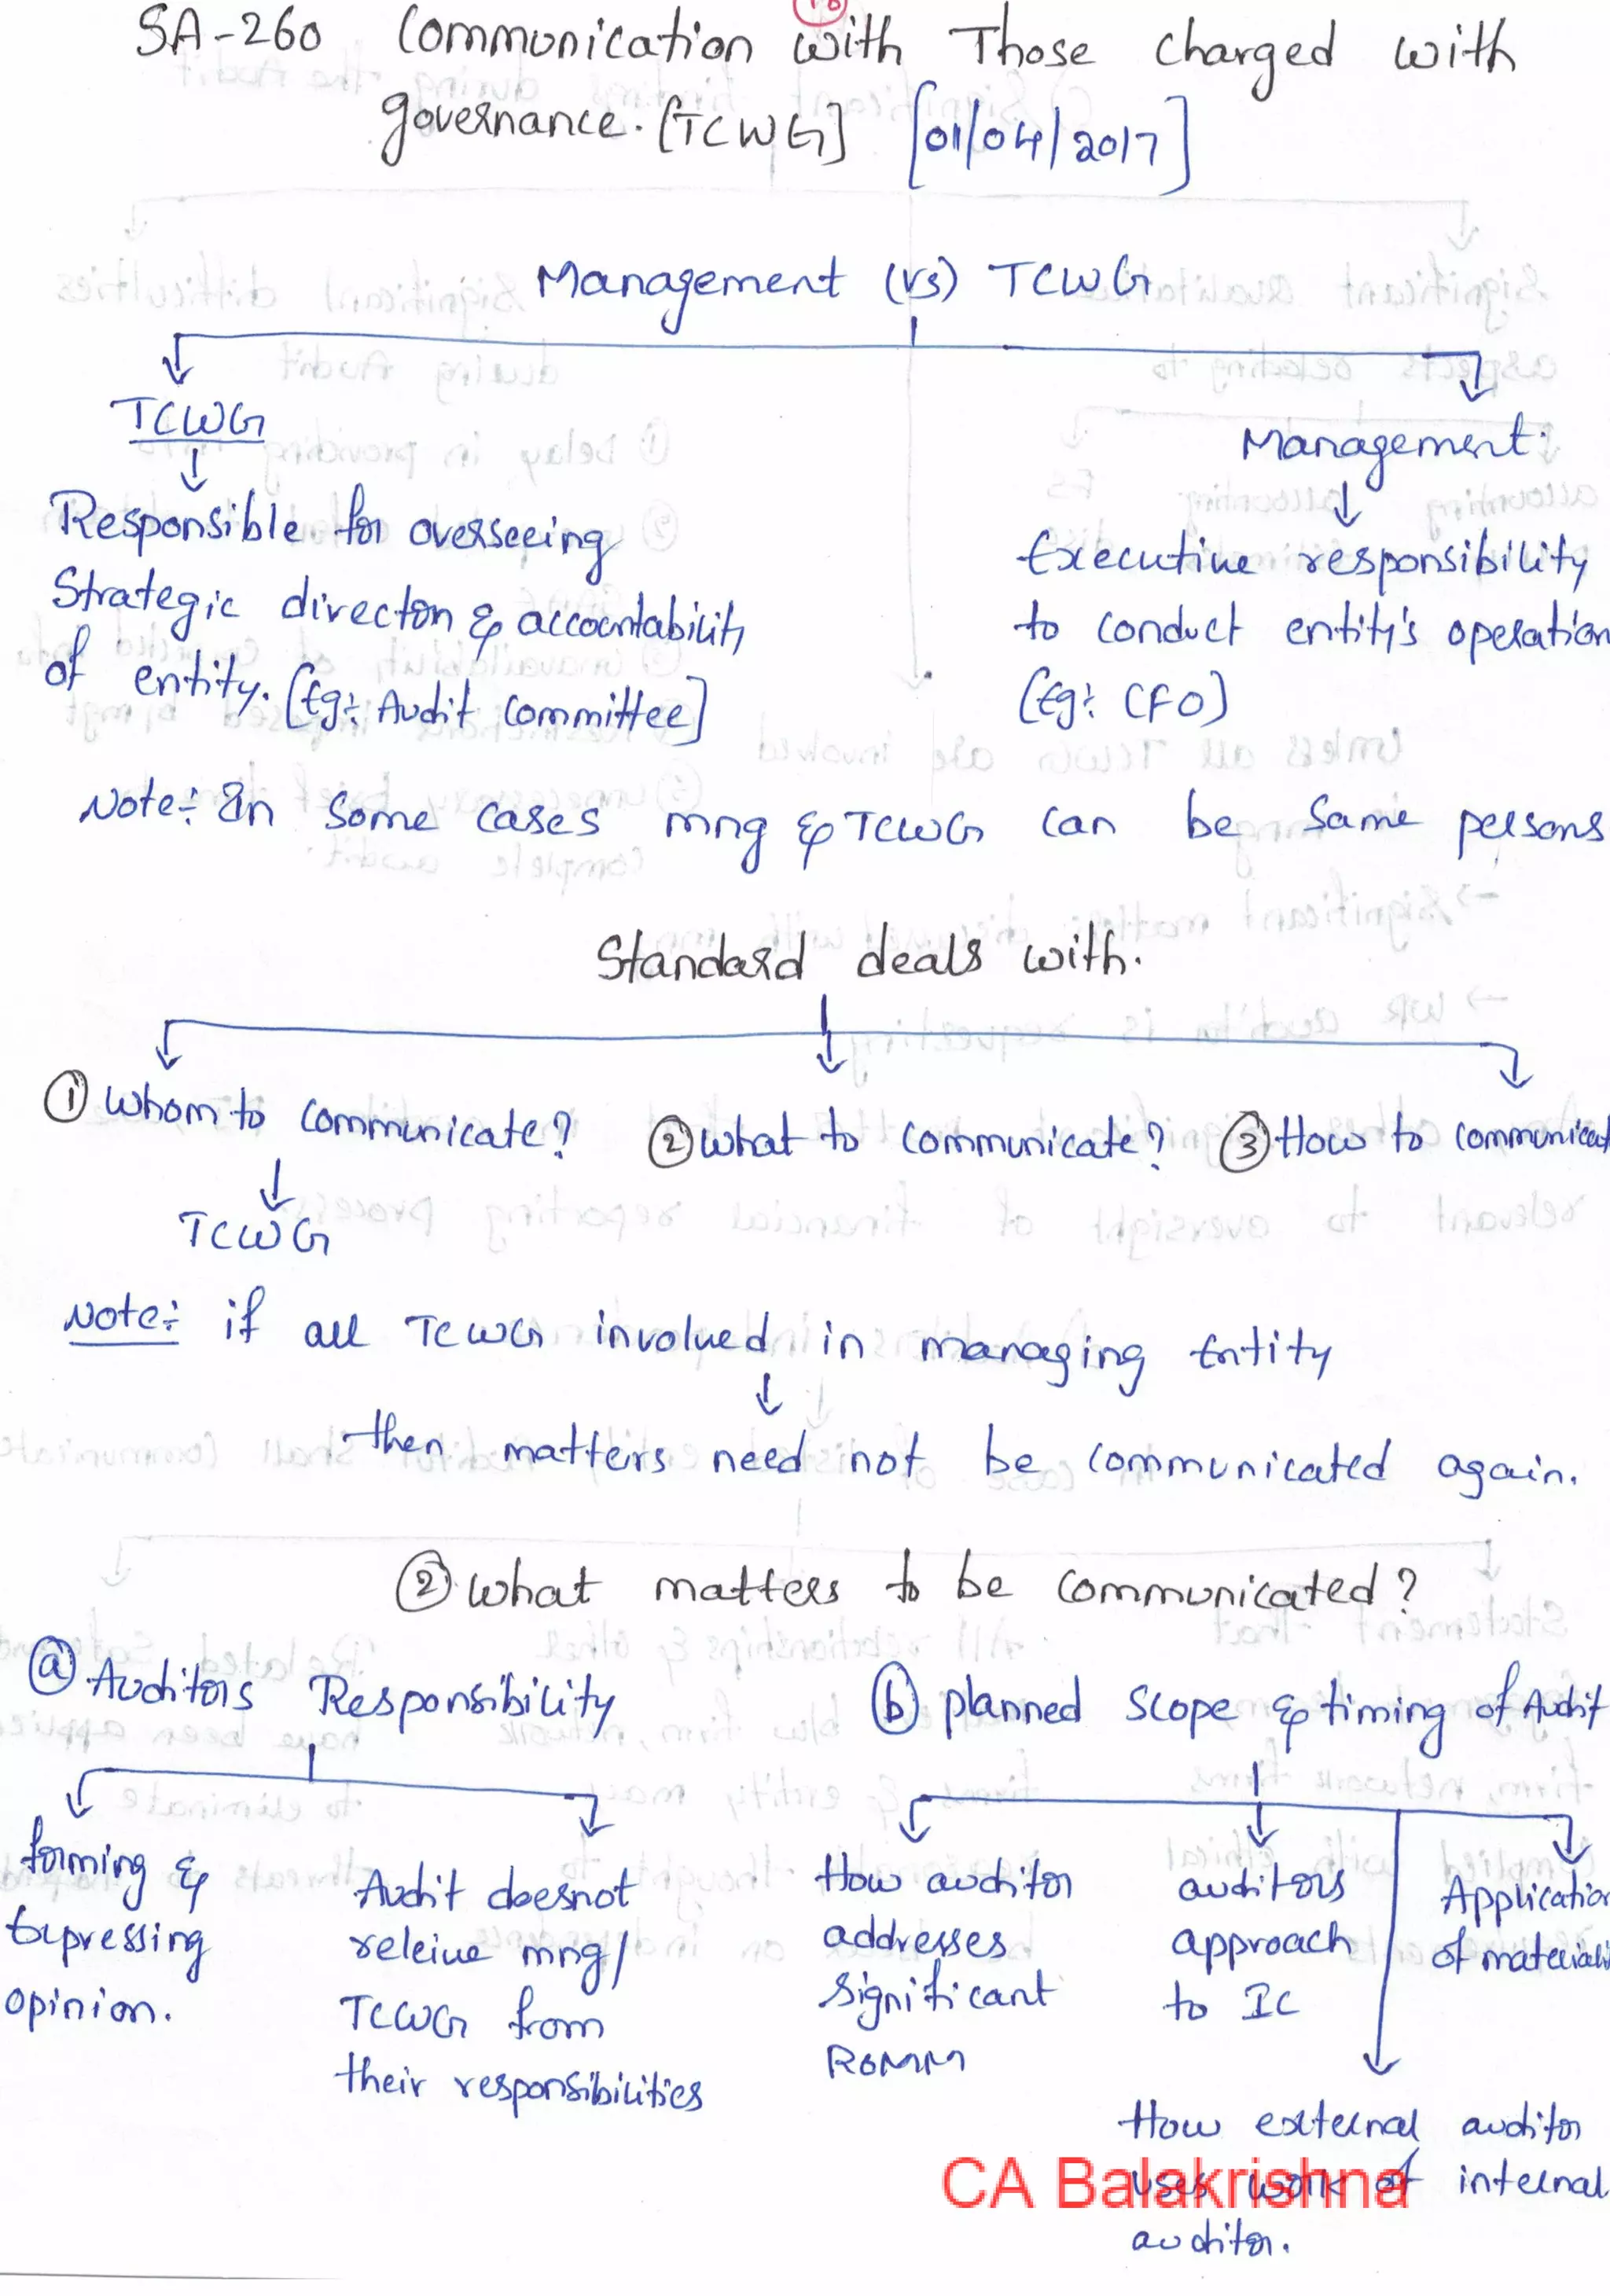 18
SA-260 Communication with Those charged with
governance. [TCWG] [01/04/2017]
Management (vs) TCWG
TCWG
Management:
Responsible for overseeing
Strategic directon & accountability
of entity. [Eg: Audit committee]
Executive responsibility
to conduct entity's operation
(Eg: CFO)
Note: In some cases mng & TCWG can be same persons
Standard deals with.
① Whom to communicate?
② What to communicate?
③ How to communicat
TCWG
Note: if all TCWG involved in managing Entity
then matters need not be communicated again.
② What matters to be communicated?
ⓐ Auditors Responsibility
ⓑ planned scope & timing of Audit
forming &
Expressing
opinion.
Audit doesnot
releive mng/
TCWG from
their responsibilities
How auditor
addresses
significant
ROMM
auditors
approach
to IC
Application
of materiali
How external auditor
uses work of internal
auditor.
CA Balakrishna